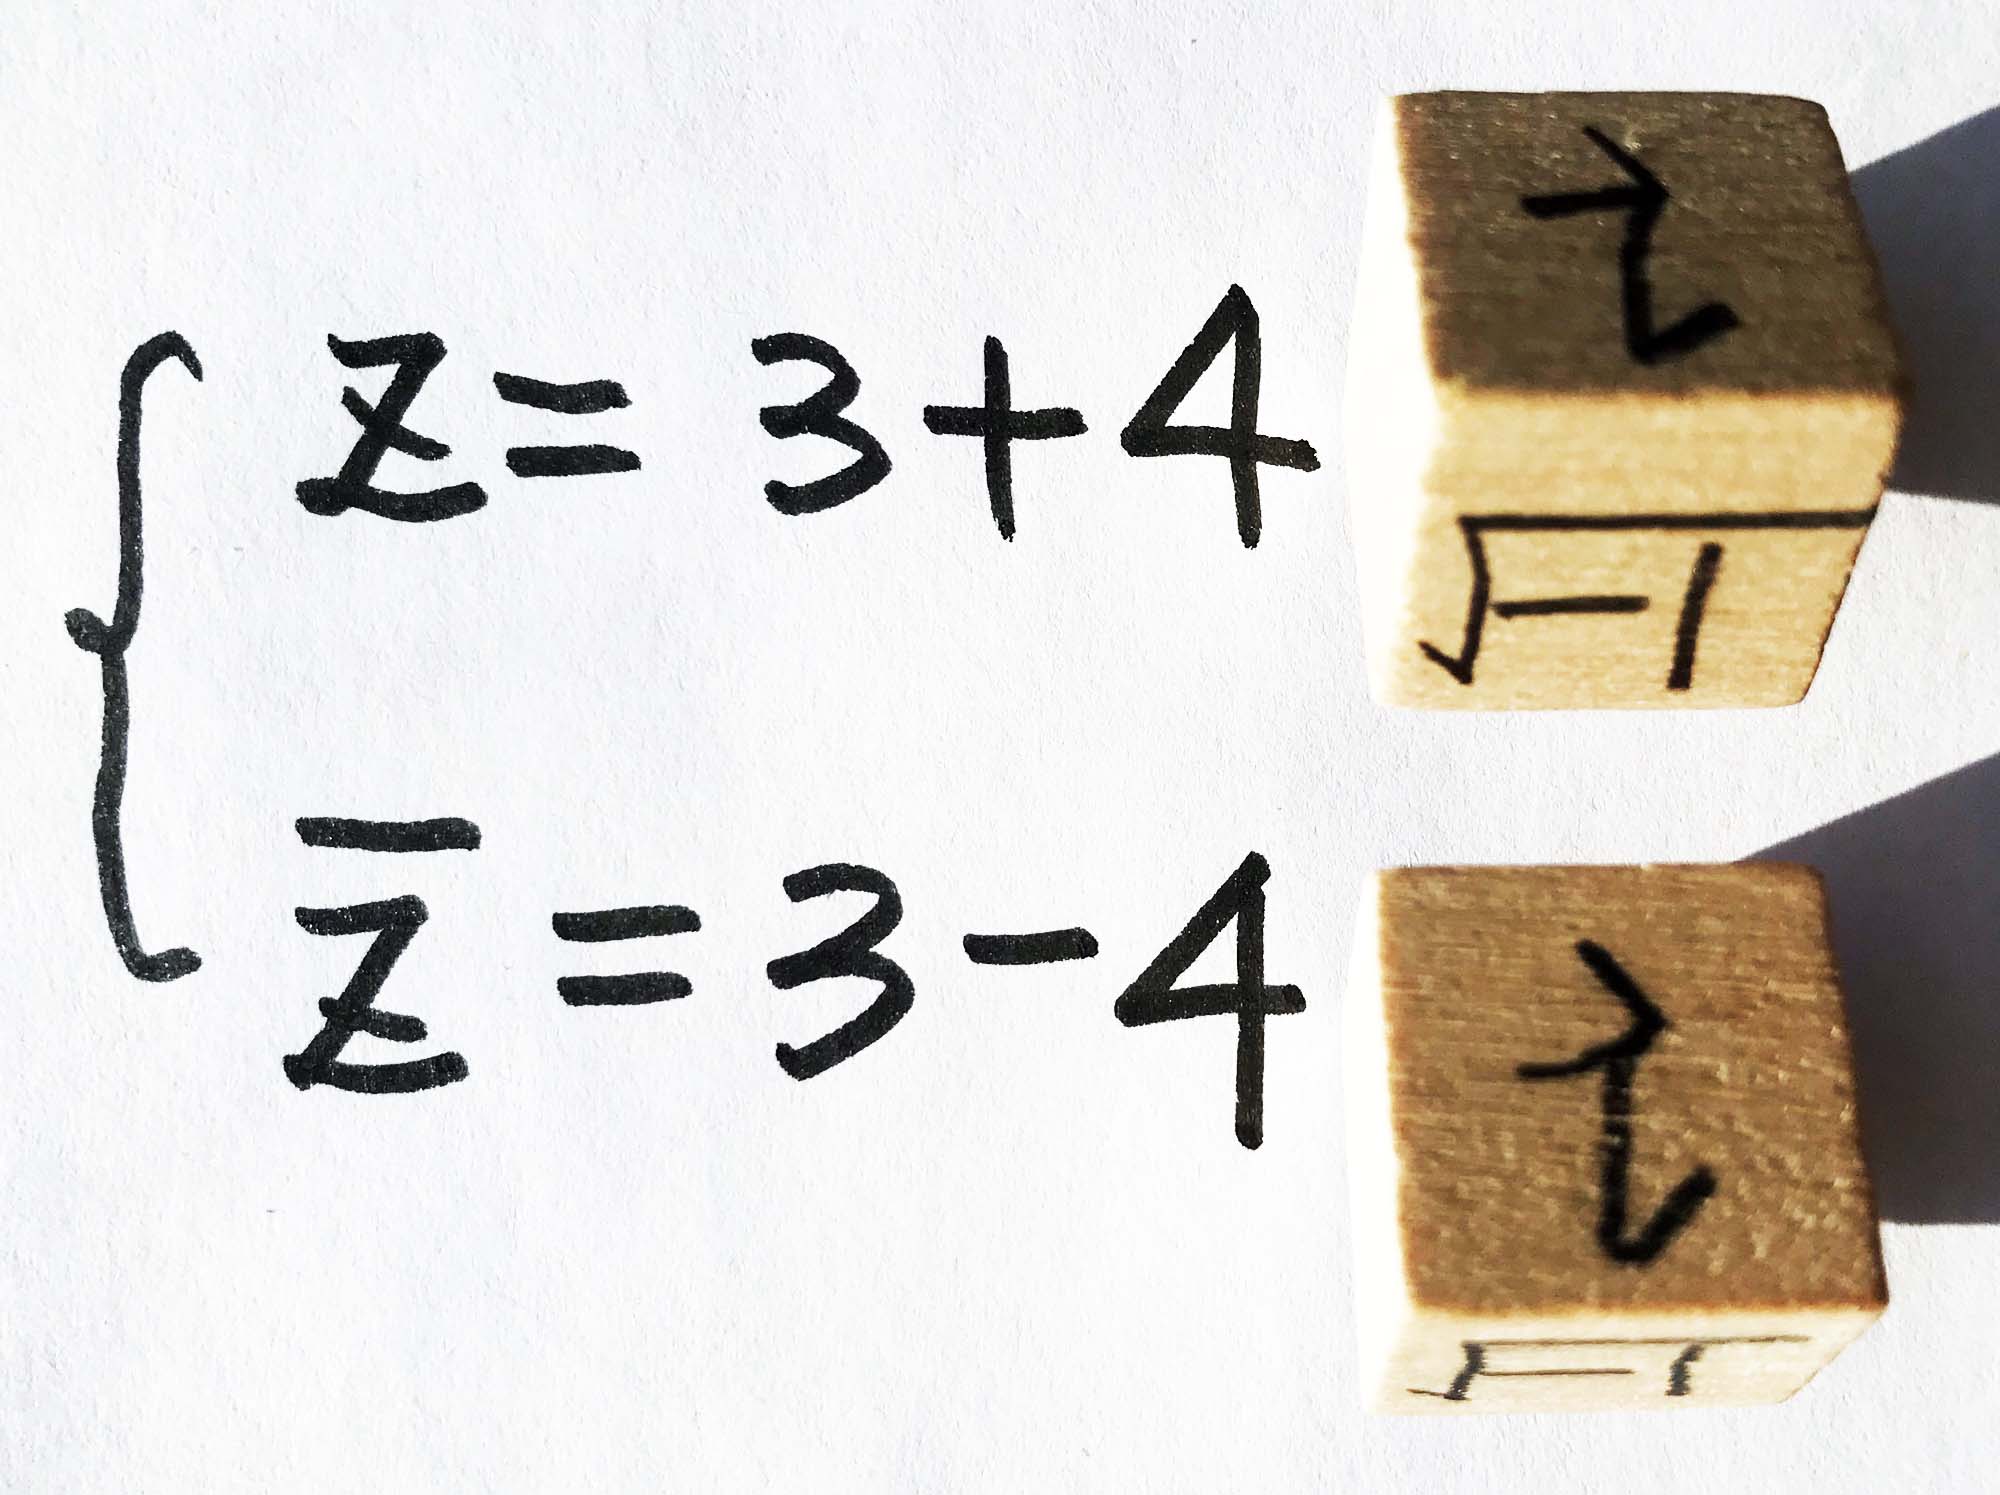 z = 3 + 4 i
√-1
z̄ = 3 - 4 i
√-1